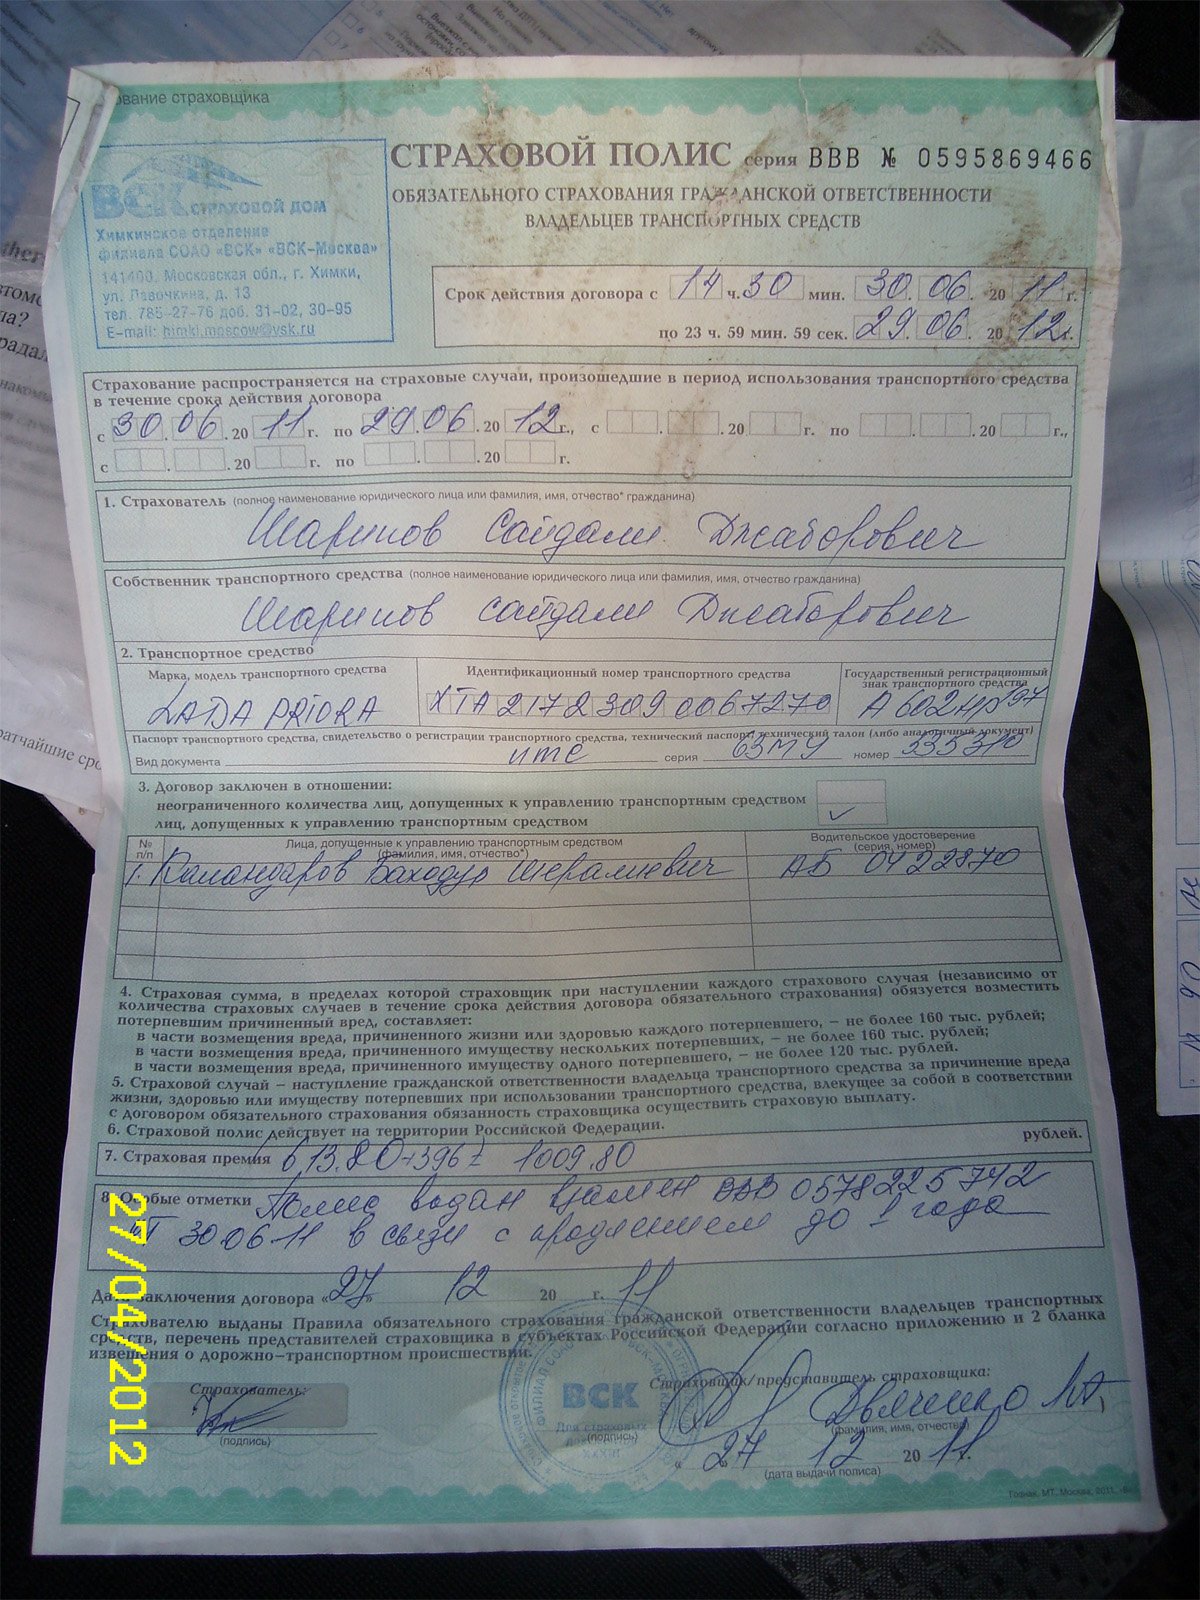 ование страховщика
ВСК СТРАХОВОЙ ДОМ
Химкинское отделение
филиала СОАО «ВСК» «ВСК-Москва»
141400, Московская обл., г. Химки,
ул. Лавочкина, д. 13
тел. 785-27-76 доб. 31-02, 30-95
E-mail: himki.moscow@vsk.ru
СТРАХОВОЙ ПОЛИС серия ВВВ № 0595869466
ОБЯЗАТЕЛЬНОГО СТРАХОВАНИЯ ГРАЖДАНСКОЙ ОТВЕТСТВЕННОСТИ
ВЛАДЕЛЬЦЕВ ТРАНСПОРТНЫХ СРЕДСТВ
Срок действия договора с 14 ч. 30 мин. 30. 06. 20 11 г.
по 23 ч. 59 мин. 59 сек. 29. 06. 20 12 г.
Страхование распространяется на страховые случаи, произошедшие в период использования транспортного средства
в течение срока действия договора
с 30. 06. 20 11 г. по 29. 06. 20 12 г., с . . 20 г. по . . 20 г.,
с . . 20 г. по . . 20 г.
1. Страхователь (полное наименование юридического лица или фамилия, имя, отчество* гражданина)
Шарипов Сайдали Джаборович
Собственник транспортного средства (полное наименование юридического лица или фамилия, имя, отчество гражданина)
Шарипов Сайдали Джаборович
2. Транспортное средство
Марка, модель транспортного средства Идентификационный номер транспортного средства Государственный регистрационный знак транспортного средства
LADA PRIORA ХТА 217230900 67270 А 602 НР 97
Паспорт транспортного средства, свидетельство о регистрации транспортного средства, технический паспорт, технический талон (либо аналогичный документ)
Вид документа птс серия 63МУ номер 335310
3. Договор заключен в отношении:
неограниченного количества лиц, допущенных к управлению транспортным средством
лиц, допущенных к управлению транспортным средством ✓
№ п/п Лица, допущенные к управлению транспортным средством (фамилия, имя, отчество*) Водительское удостоверение (серия, номер)
1. Каландаров Баходур Шералиевич АБ 0422870
4. Страховая сумма, в пределах которой страховщик при наступлении каждого страхового случая (независимо от
количества страховых случаев в течение срока действия договора обязательного страхования) обязуется возместить
потерпевшим причиненный вред, составляет:
в части возмещения вреда, причиненного жизни или здоровью каждого потерпевшего, – не более 160 тыс. рублей;
в части возмещения вреда, причиненного имуществу нескольких потерпевших, – не более 160 тыс. рублей;
в части возмещения вреда, причиненного имуществу одного потерпевшего, – не более 120 тыс. рублей.
5. Страховой случай – наступление гражданской ответственности владельца транспортного средства за причинение вреда
жизни, здоровью или имуществу потерпевших при использовании транспортного средства, влекущее за собой в соответствии
с договором обязательного страхования обязанность страховщика осуществить страховую выплату.
6. Страховой полис действует на территории Российской Федерации.
7. Страховая премия 613.80+396= 1009.80 рублей.
8. Особые отметки Полис выдан взамен ВВВ 0578225742
от 30 06 11 в связи с продлением до 1 года
Дата заключения договора «27» 12 20 11 г.
Страхователю выданы Правила обязательного страхования гражданской ответственности владельцев транспортных
средств, перечень представителей страховщика в субъектах Российской Федерации согласно приложению и 2 бланка
извещения о дорожно-транспортном происшествии.
Страхователь: Страховщик/представитель страховщика:
ВСК
Для страховых
(подпись) (подпись) (фамилия, имя, отчество)
27 12 20 11 г.
(дата выдачи полиса)
Гознак, МТ, Москва, 2011
27/04/2012